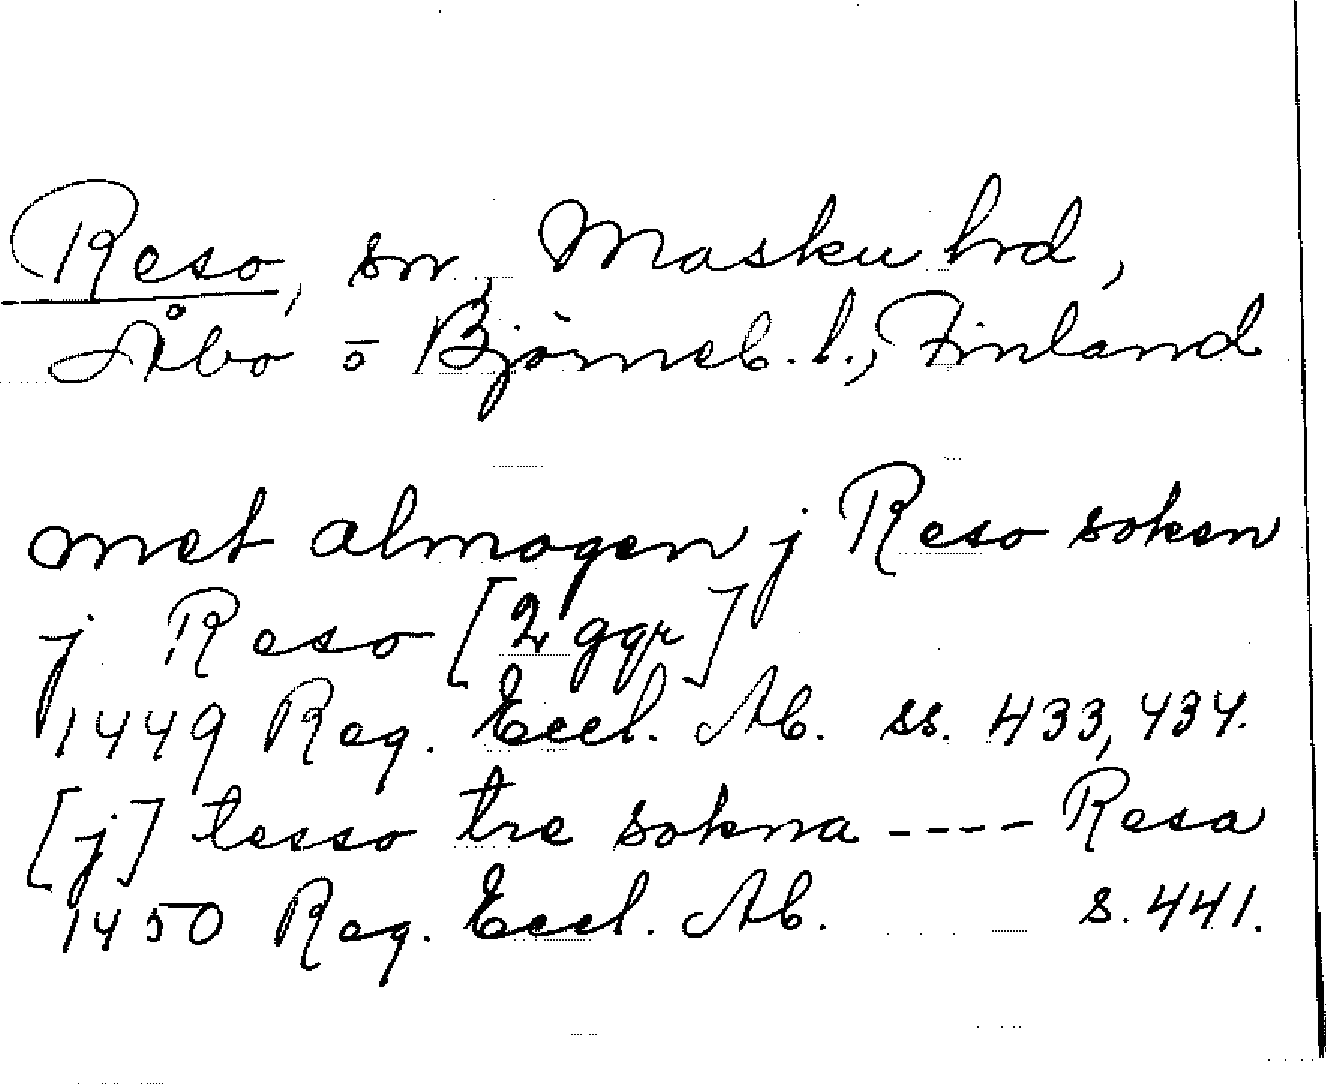 Reso, sn, Masku hrd,
Åbo o Björneb. l., Finland
met almogen j Reso soken
j Reso [2 ggr]
1449 Reg. Eccl. Ab. ss. 433, 434.
[j] tesso tre sokna ---- Resa
1450 Reg. Eccl. Ab. s. 441.